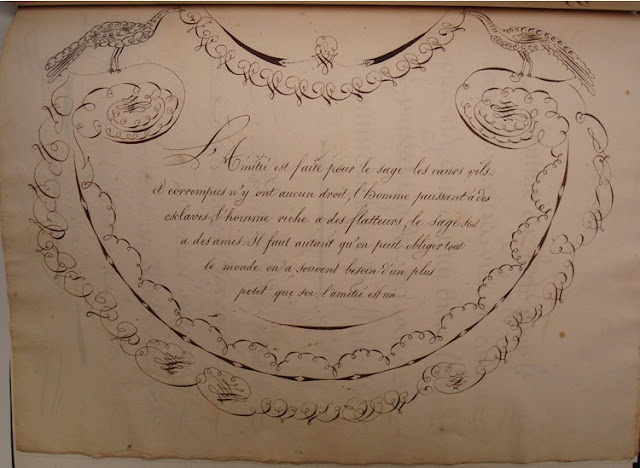 L'Amitié est faite pour le sage les cœurs vils
et corrompus n'y ont aucun droit, l'homme puissant a des
esclaves, l'homme riche a des flatteurs, le sage seul
a des amis. Il faut autant qu'on peut obliger tout
le monde on a souvent besoin d'un plus
petit que soi, l'amitié est un